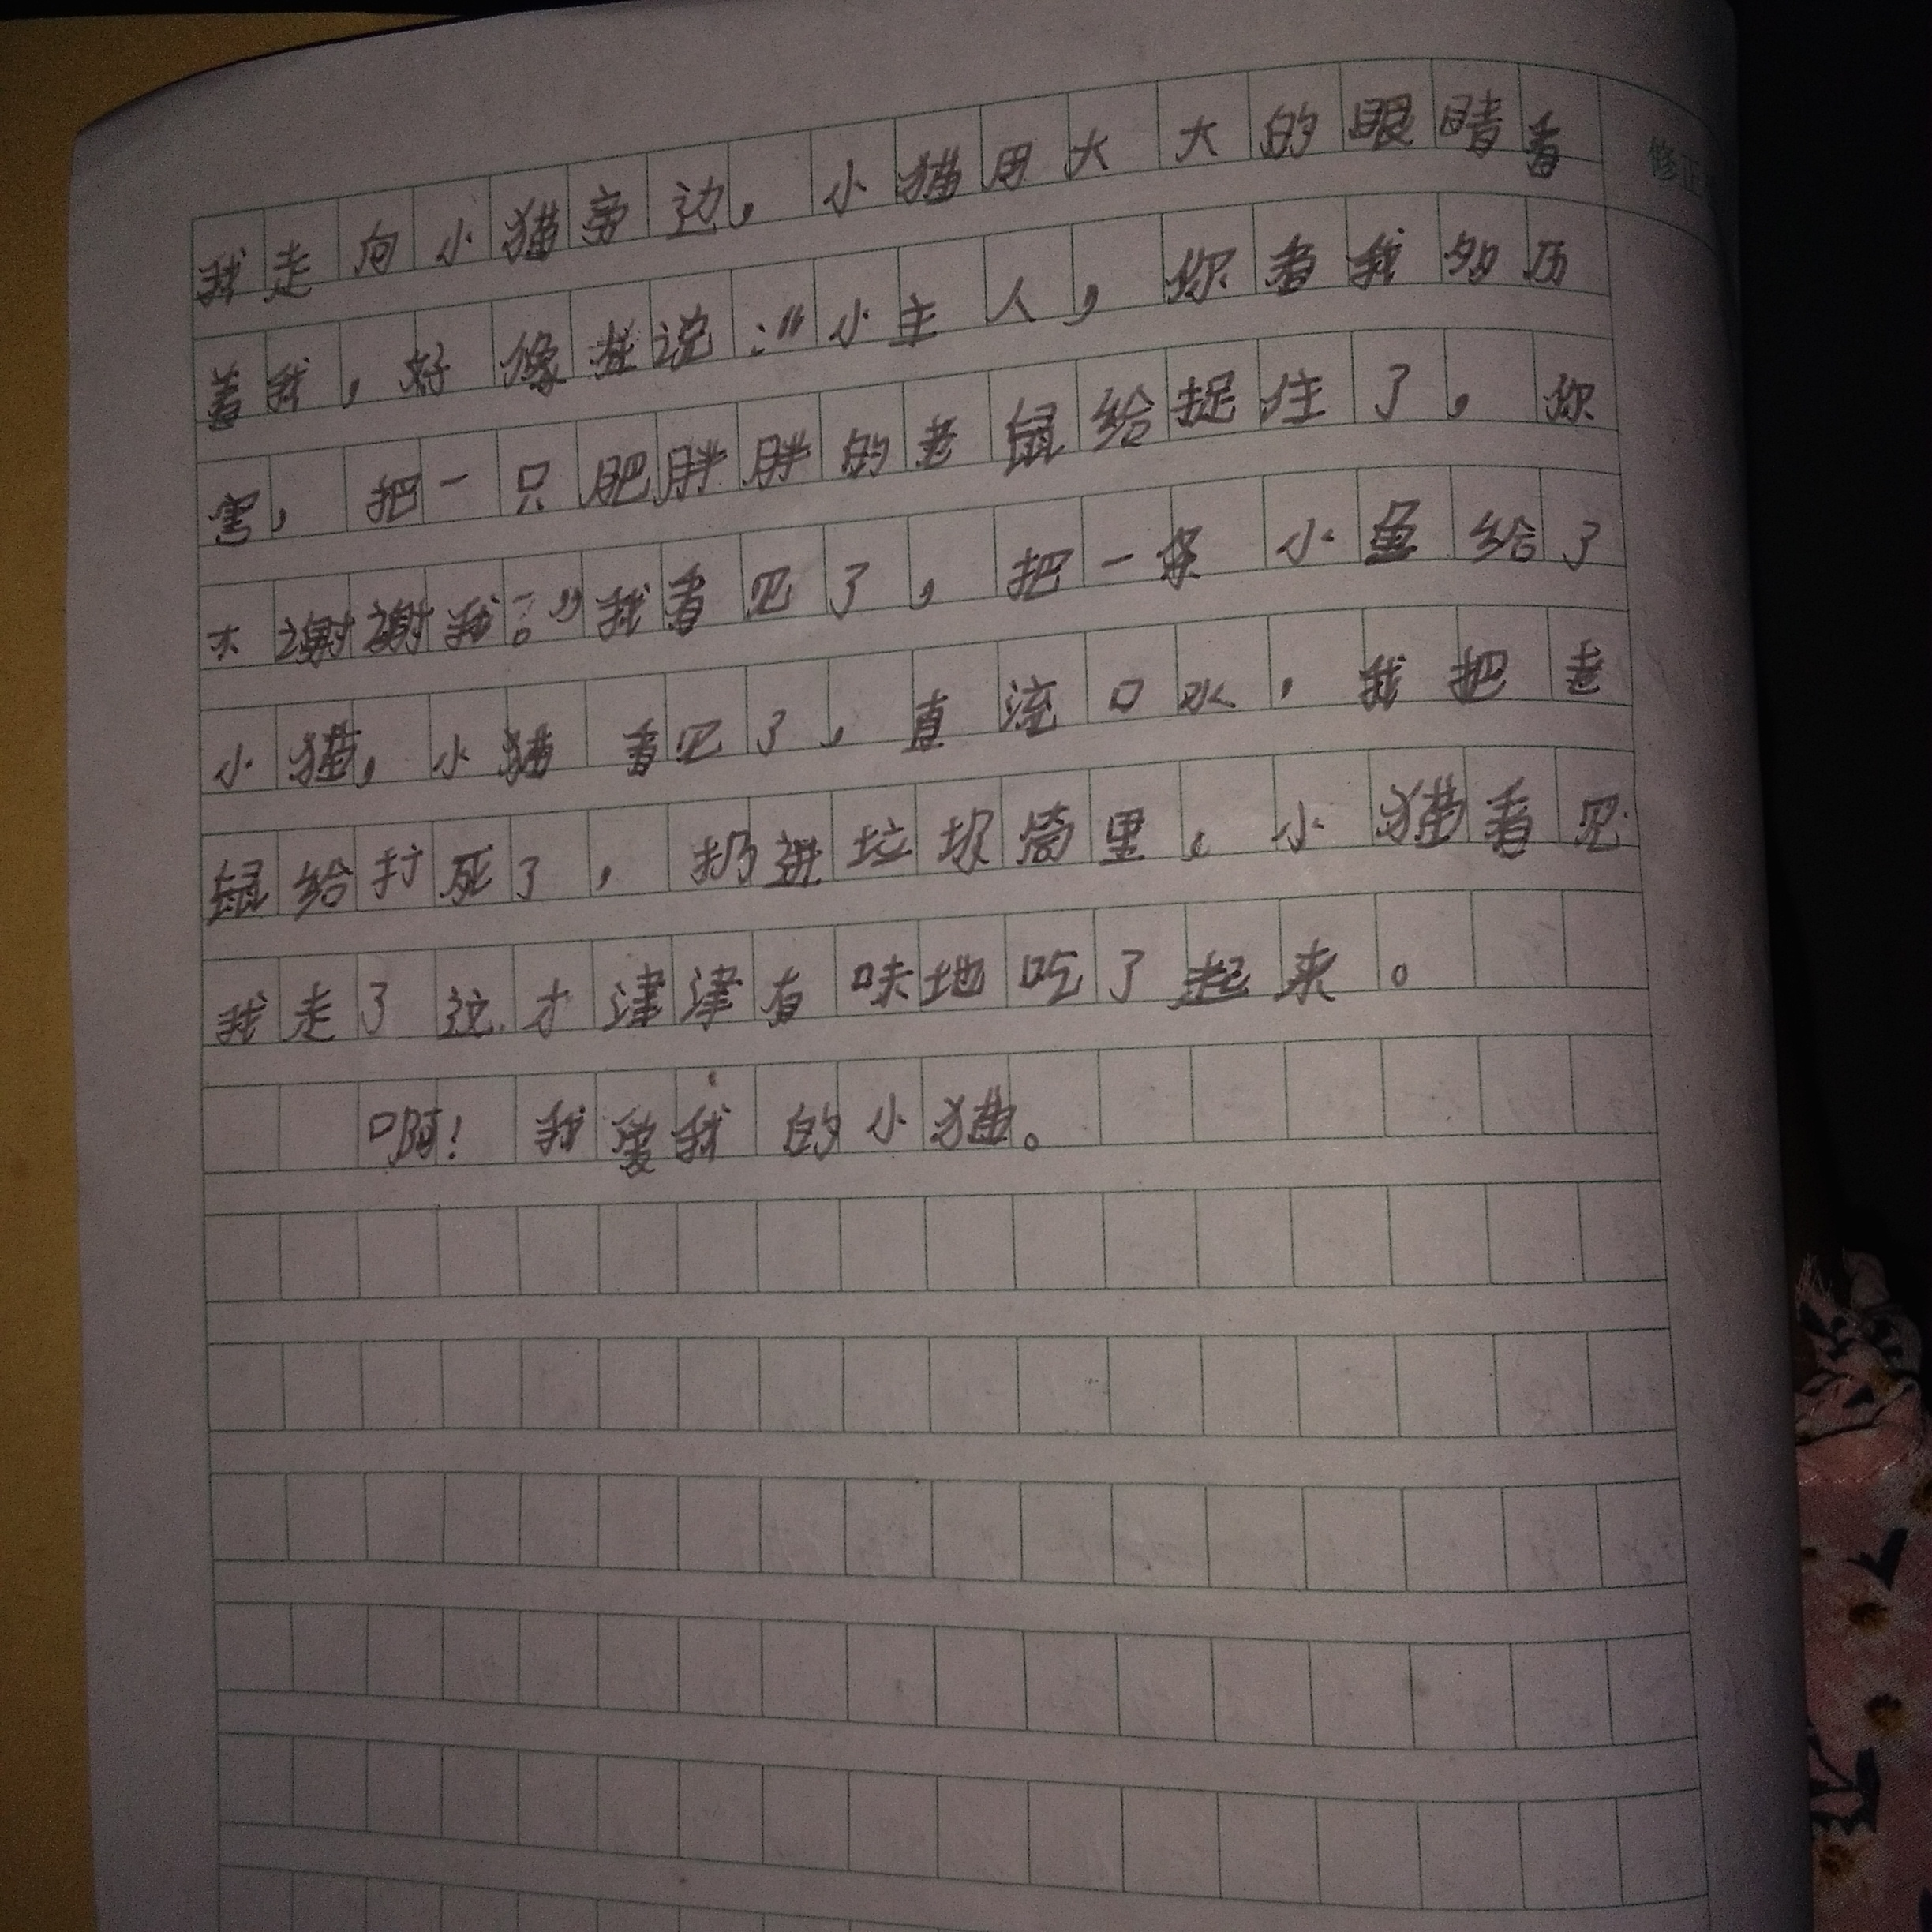 修正
我走向小猫旁边，小猫用大大的眼睛看
着我，好像在说：“小主人，你看我多历
害，把一只肥胖胖的老鼠给捉住了，你
不谢谢我。”我看见了，把一条小鱼给了
小猫，小猫看见了，直流口水，我把老
鼠给打死了，扔进垃圾筒里，小猫看见
我走了这才津津有味地吃了起来。
啊！我爱我的小猫。